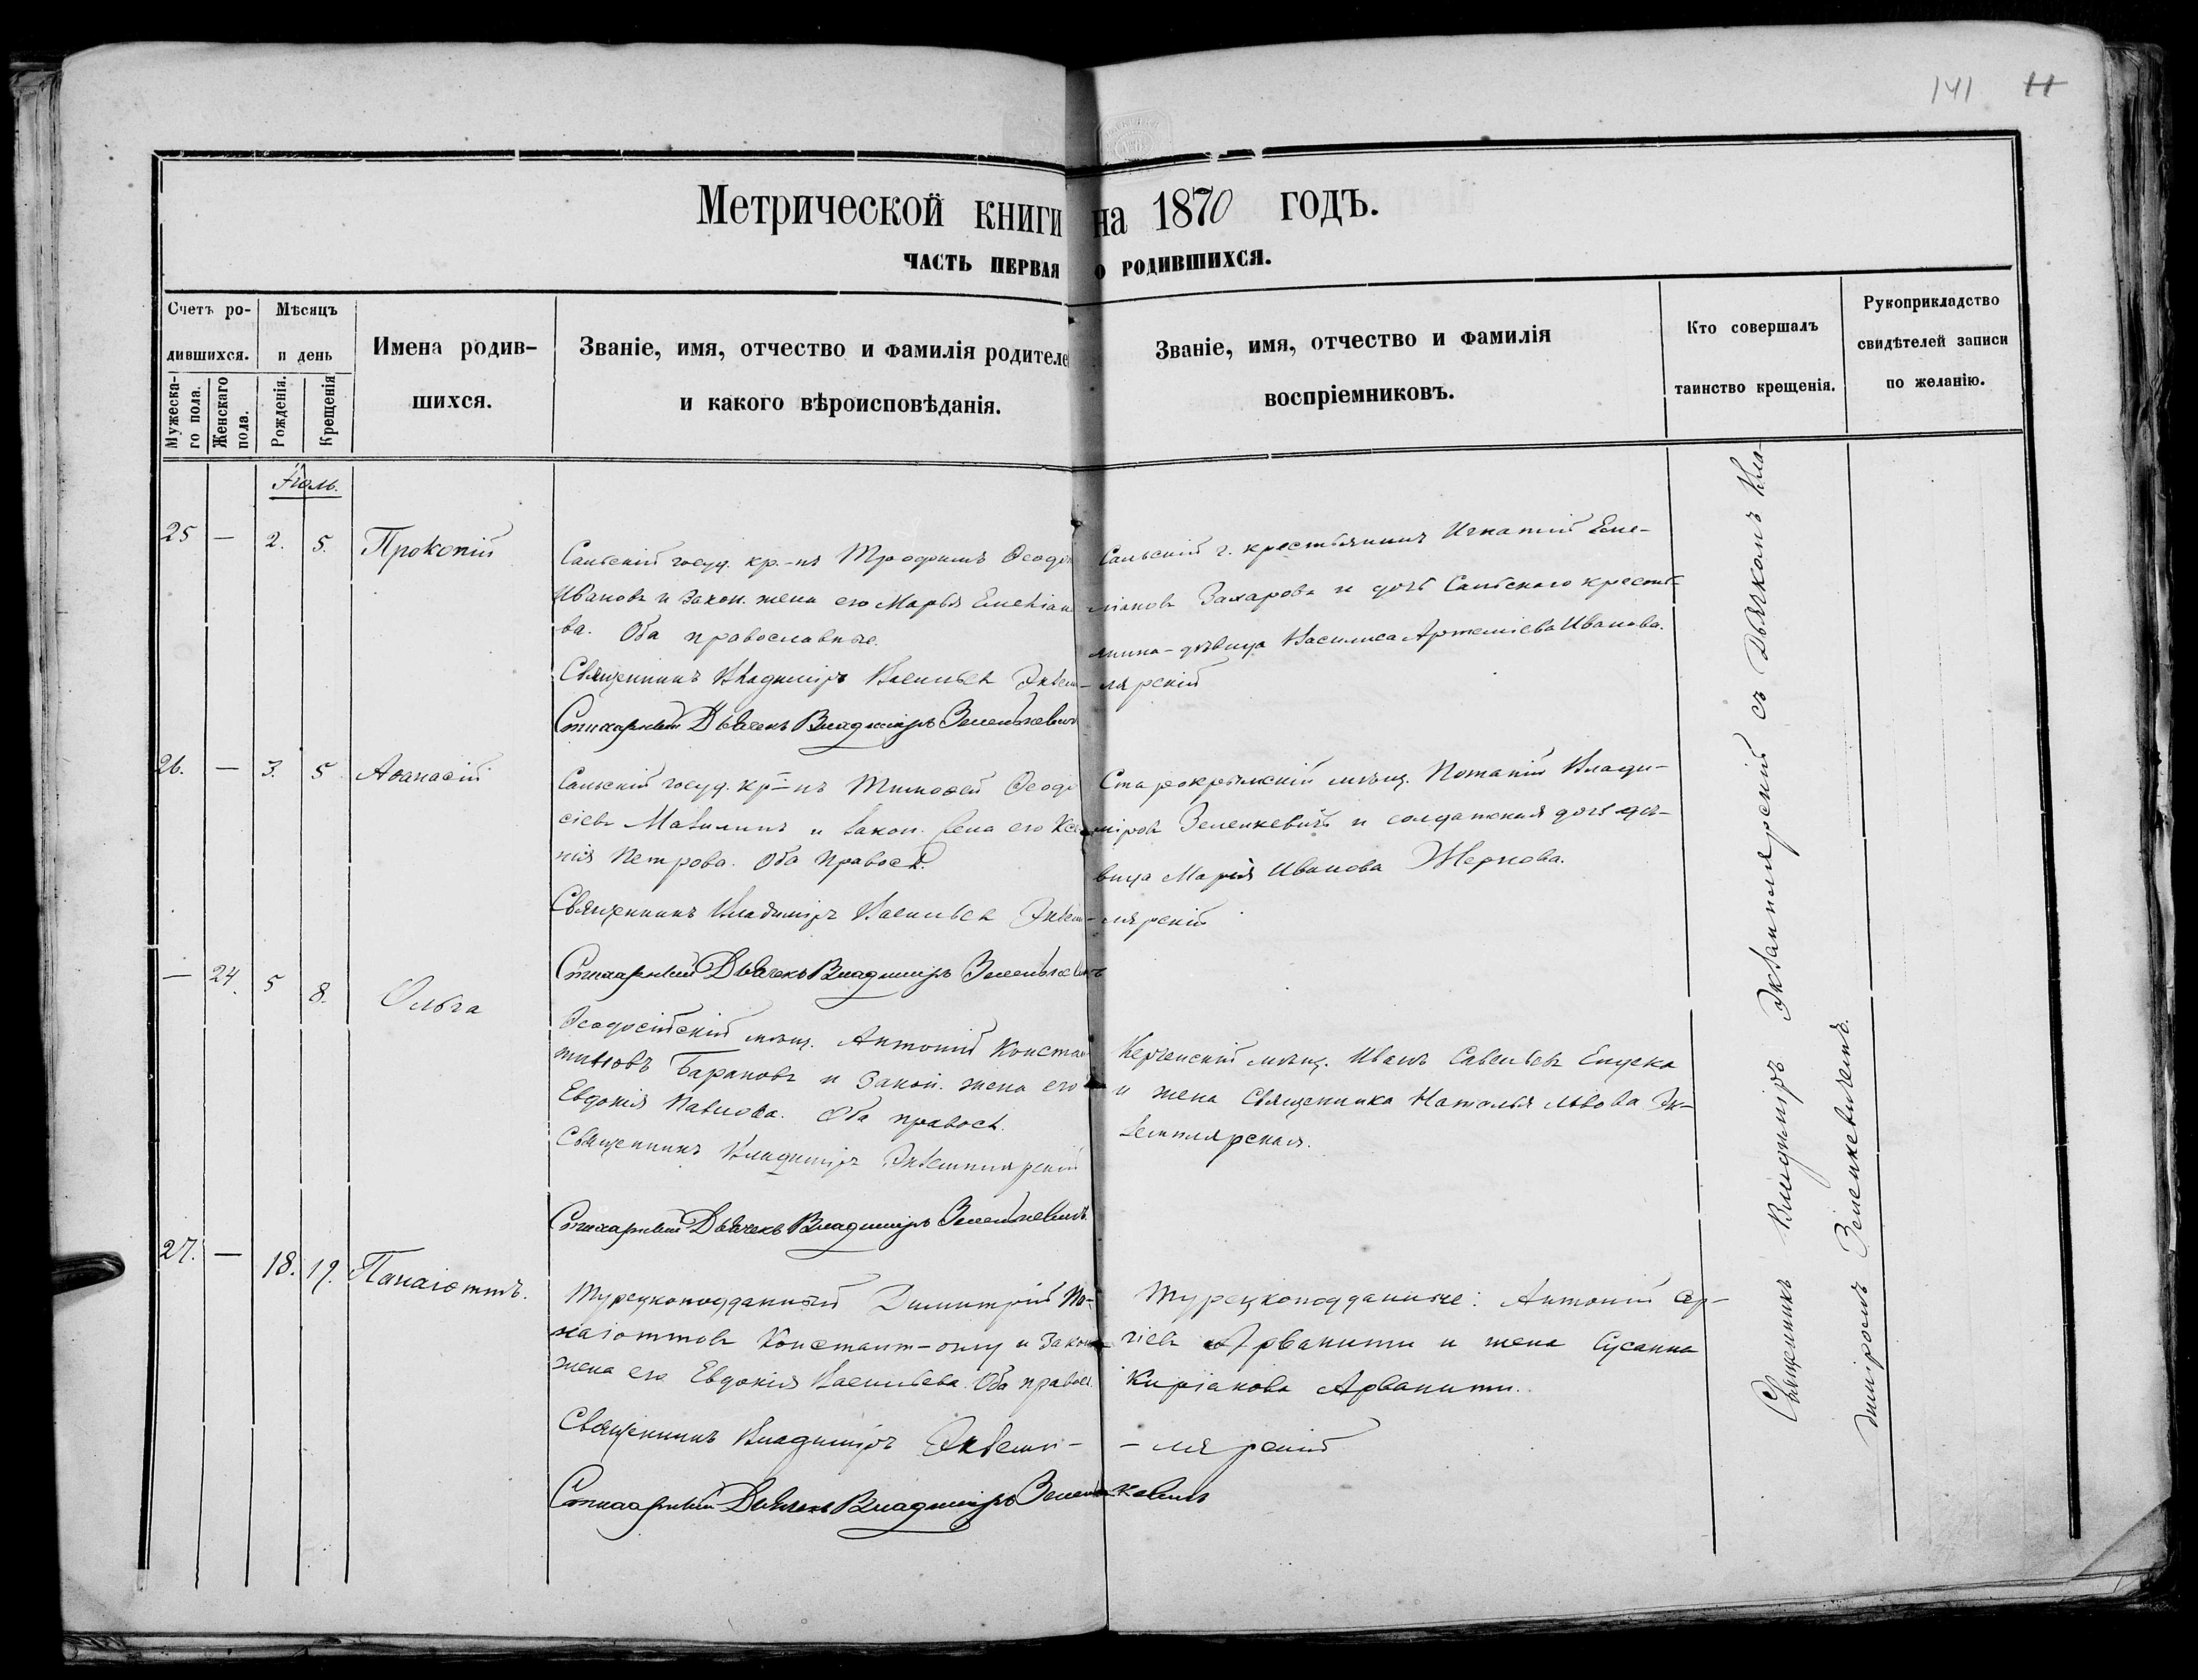 141 11
Метрической книги на 1870 годъ.
ЧАСТЬ ПЕРВАЯ О РОДИВШИХСЯ.
Счетъ ро-
дившихся.
Мужеска-
го пола.
Женскаго
пола.
Мѣсяцъ
и день
Рожденія.
Крещенія
Имена родив-
шихся.
Званіе, имя, отчество и фамилія родителе
и какого вѣроисповѣданія.
Званіе, имя, отчество и фамилія
воспріемниковъ.
Кто совершалъ
таинство крещенія.
Рукоприкладство
свидѣтелей записи
по желанію.
Іюль.
25 — 2. 5. Прокопій
Сальскій госуд. кр.-нъ Трофимъ Ѳеодо
Ивановъ и закон. жена его Марья Емеліан
ва. Оба православные.
Священникъ Владиміръ Васильевъ Экзем-
Стихарный Дьячекъ Владиміръ Зеленкевичъ
Сальскій г. крестьянинъ Игнатій Еме-
ліановъ Захаровъ и дочь Сальскаго кресть-
янина-дѣвица Василиса Артеміева Иванова.
лярскій
26. — 3. 5 Аѳанасій
Сальскій госуд. кр-нъ Тимоѳей Ѳеодо
сіевъ Мазилинъ и закон. жена его Ксе
нія Петрова. Оба правосл.
Священникъ Владиміръ Васильевъ Экзем-
Стихарный Дьячекъ Владиміръ Зеленкевичъ
Старокрымскій мѣщ. Потапій Влади-
міровъ Зеленкевичъ и солдатская дочь дѣ-
вица Марія Иванова Жернова.
лярскій
— 24. 5 8. Ольга
Ѳеодосійскій мѣщ. Антоній Констан
тиновъ Барановъ и закон. жена его
Евдокія Павлова. Оба правосл.
Священникъ Владиміръ Экземплярскій
Стихарный Дьячекъ Владиміръ Зеленкевичъ.
Керченскій мѣщ. Иванъ Савельевъ
и жена Священника Наталья Львова Эк-
земплярская.
27. — 18. 19. Панаіоттъ.
Турецкоподданный Димитрій Па-
наіоттовъ Констант-оглу и закон
жена его Евдокія Васильева. Оба правосл.
Священникъ Владиміръ Экземп-
Стихарный Дьячекъ Владиміръ Зеленкевичъ
Турецкоподданные: Антоній Сер-
гіевъ Арванити и жена Сусанна
Киріакова Арванити.
- лярскій
Священникъ Владиміръ Экземплярскій съ Дьячкомъ Вла-
диміромъ Зеленкевичемъ.